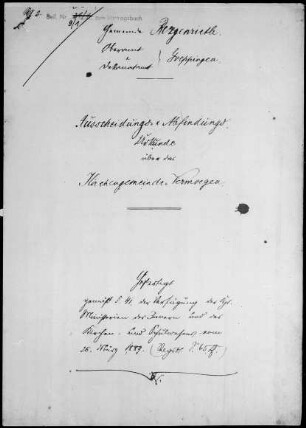 Gemeinde Bezgenrieth.
Oberamt
u.
Dekanatamt
} Goeppingen.
Ausscheidungs- & Abfindungs-
Urkunde
über das
Kirchengemeinde-Vermoegen.
Gefertigt
gemäß §. 41. der Verfügung der Kgl.
Ministerien des Innern und des
Kirchen- und Schulwesens vom
März 1889. (Regbl. S. 65